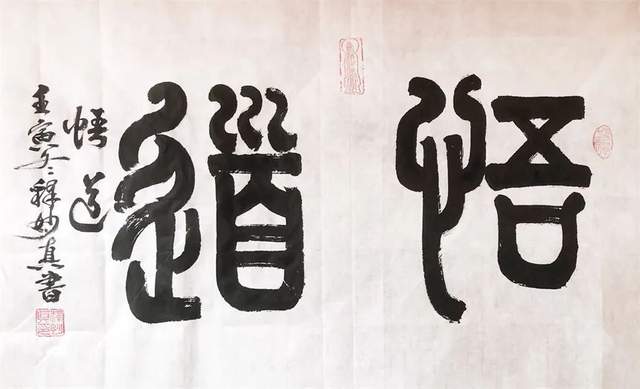 悟道
悟道
壬寅冬釋妙真書